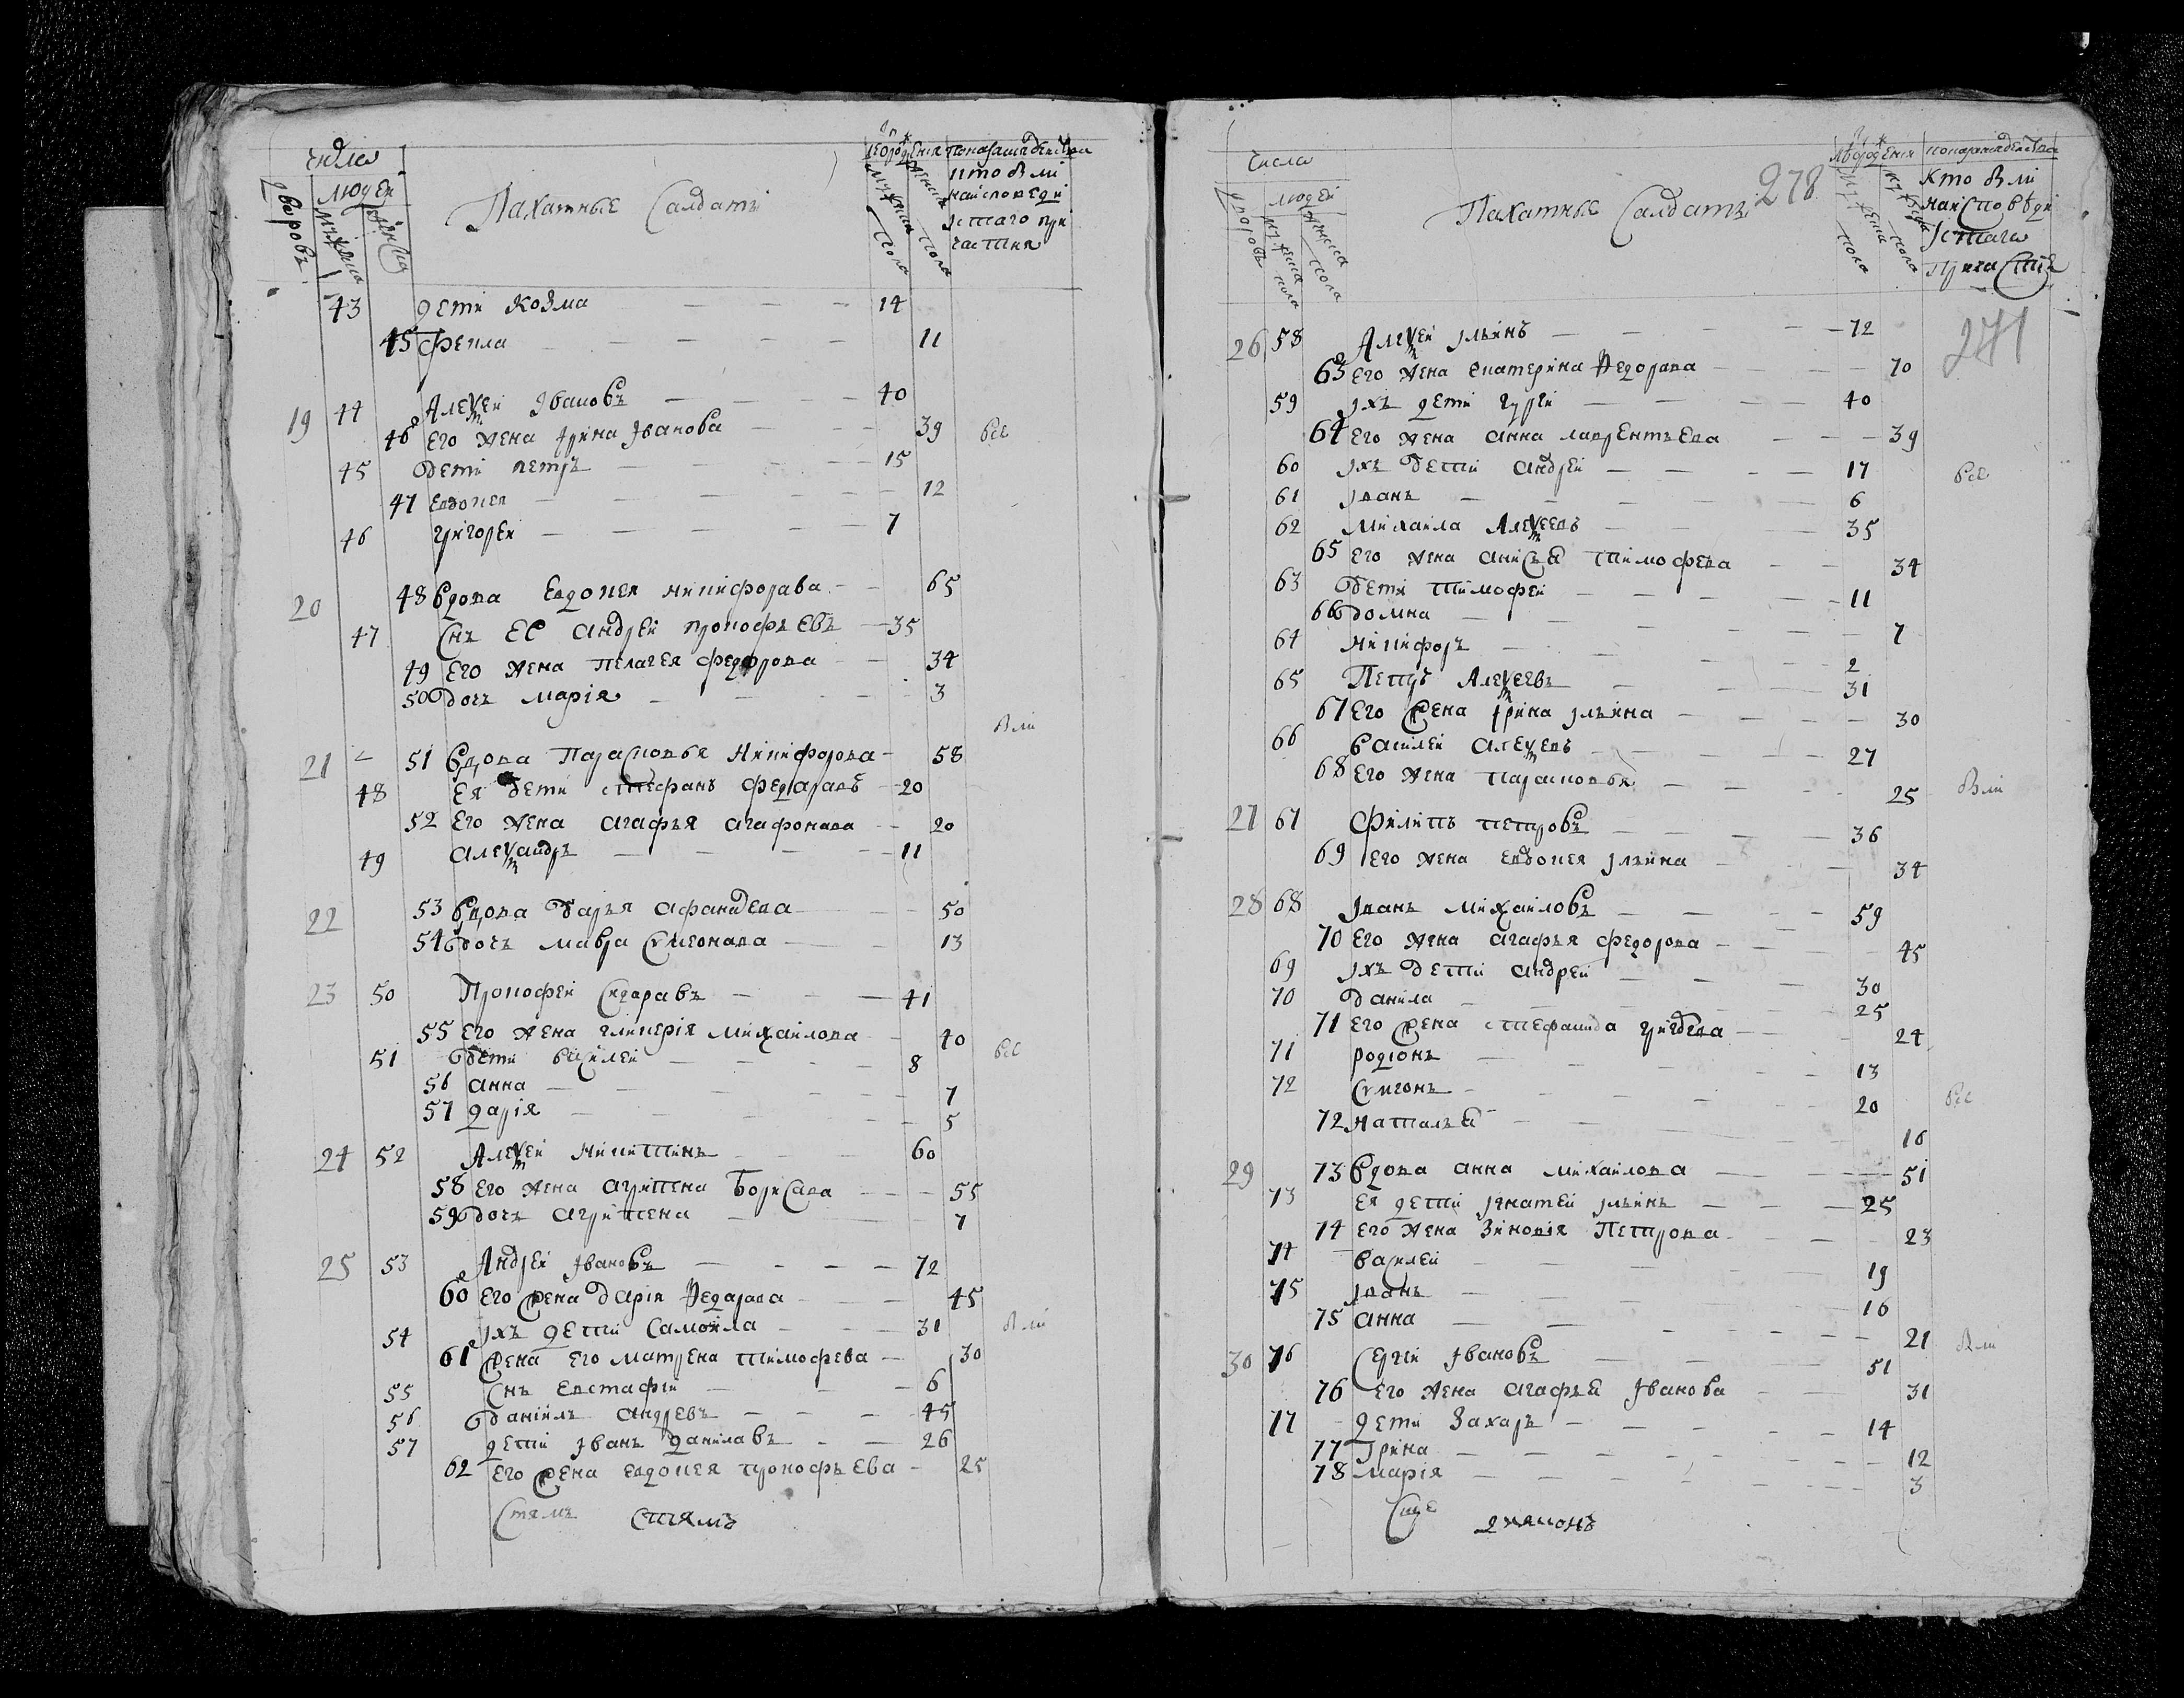 числа
людей
дворовъ
мужеска
женска
Пахатные Салдаты
лѣ от рождения
мужеска пола
женска пола
показанiе действа
кто был
на исповеди
i стаго при
частия
43 дети Козма 14
45 Фекла 11
19 44 Алеѯей Iвановъ 40
46 Его жена Iрина Iванова 39 были
45 дети петръ 15
47 Евдокея 12
46 григорей 7
20 48 вдова Евдокея никифорава 65
47 Снъ Ее андрей прокофьевъ 35
49 Его жена пелагея федорова 34
50 дочь марiя 3
были
21 51 вдова Парасковья Никифорова 58
48 Ея дети стефанъ федаравъ 20
52 Его жена агафья агафонава 20
49 алеѯандръ 11
22 53 вдова дарья афанасева 50
54 дочь мавра Симеонава 13
23 50 Прокофей Сидаравъ 41
55 Его жена гликерiя михайлова 40
51 дети василей 8
56 анна 7
57 дарiя 5
24 52 Алеѯей никитинъ 60
58 Его жена агрипена Борисава 55
59 дочь агрипена 7
25 53 Андрей Iвановъ 72
60 Его жена дарiя Ѳедарава 45
54 Iхъ дети Самойла 31 были
61 жена Его матрена тимофева 30
55 Снъ Евстафiй 6
56 данiилъ андревъ 45
57 дети Iванъ данилавъ 26
62 Его жена евдокея прокофьева 25
числа
людей
дворовъ
мужеска пола
женска пола
Пахатные Салдаты
278
лѣ от рождения
показанiе действа
кто был
на исповѣди
i стаго
причастiя
271
26 58 Алеѯей Iльинъ 72
63 Его жена екатерина Ѳедорава 70
59 Iхъ дети гурей 40
64 Его жена анна лаврентьева 39
60 Iхъ дети андрей 17
61 Iванъ 6
62 михаила Алеѯеевъ 35
65 Его жена анисья тимофева 34
63 дети тимофей 11
66 домна 7
64 никифоръ 2
65 Петръ Алеѯеевъ 31
67 Его жена Iрина Iльина 30
66 василей алеѯевъ 27
68 Его жена парасковья 25 были
27 67 Филипъ петровъ 36
69 Его жена евдокея Iльина 34
28 68 Iванъ михайловъ 59
70 Его жена агафья федорова 45
69 Iхъ дети андрей 30
70 данила 25
71 Его жена стефанида 24
71 родiонъ 13
72 Симеонъ 20
72 наталья 16
29 73 вдова анна михайлова 51
73 Ея дети Iгнатей Iльинъ 25
74 Его жена Зиновiя Петрова 23
74 василей 19
75 Iванъ 16
75 анна 21
30 76 Сергей Iвановъ 51
76 Его жена агафья Iванова 31
77 дети Захаръ 14
77 Iрина 12
78 марiя 3